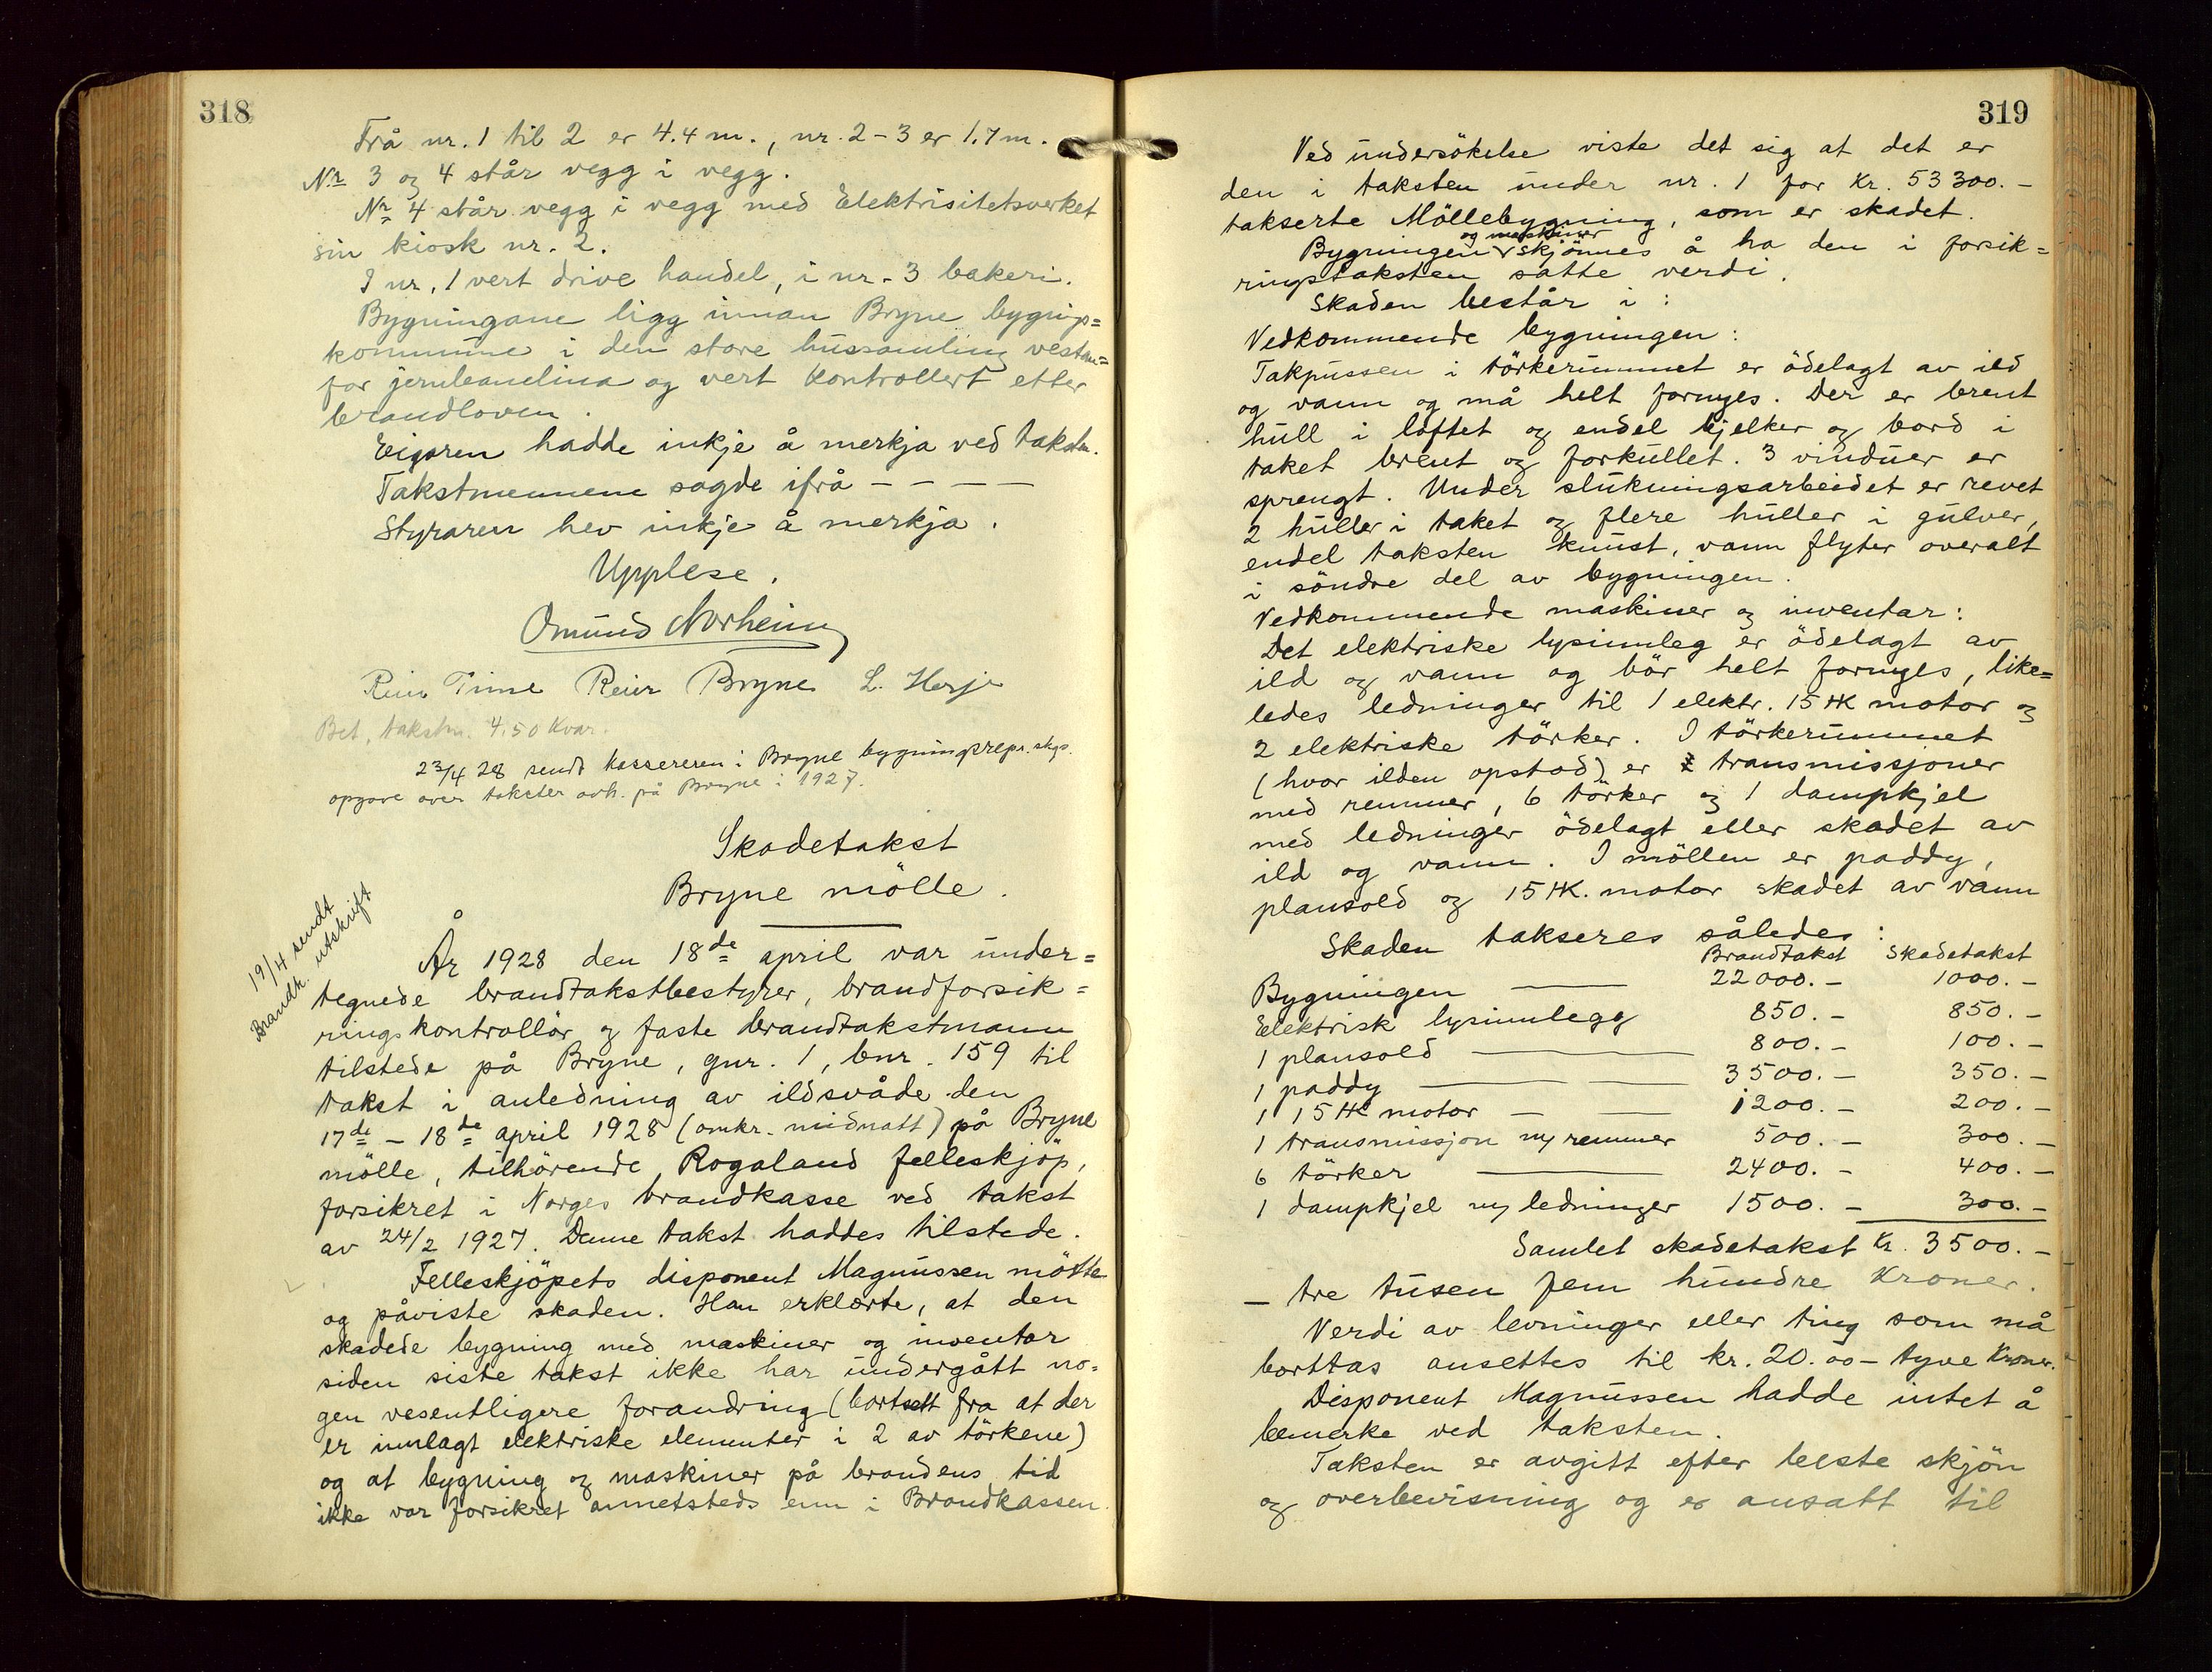 318
Frå nr. 1 til 2 er 4.4 m., nr. 2-3 er 1.7 m.
Nr 3 og 4 står vegg i vegg.
Nr 4 står vegg i vegg med Elektrisitetsverket
sin kiosk nr. 2.
I nr. 1 vert drive handel, i nr. 3 bakeri.
Bygningane ligg innan Bryne bygnings=
kommune i den store hussamling vestan=
for jernbanelina og vert kontrollert etter
brandloven.
Eigaren hadde inkje å merkja ved taksten.
Takstmennene sagde ifrå - - - -
Styraren hev inkje å merkja.
Upplese.
Omund Norheim
Reier Time Reier Bryne L. Herje
Bet. takstm. 4.50 kvar.
23/4 28 sendt kassereren i Bryne bygningsrepr. skp.
opgave over takster avh. på Bryne i 1927.
Skadetakst
Bryne mölle.
19/4 sendt
Brandk. utskrift
År 1928 den 18de april var under=
tegnede brandtakstbestyrer, brandforsik=
ringskontrollör og faste brandtakstmann
tilstede på Bryne, gnr. 1, bnr. 159 til
takst i anledning av ildsvåde den
17de - 18de april 1928 (omkr. midnatt) på Bryne
mölle, tilhörende Rogaland felleskjöp,
forsikret i Norges brandkasse ved takst
av 24/2 1927. Denne takst haddes tilstede.
Felleskjöpets disponent Magnussen mötte
og påviste skaden. Han erklærte, at den
skadede bygning med maskiner og inventar
siden siste takst ikke har undergått no=
gen vesentligere forandring (bortsett fra at der
er innlagt elektriske elementer i 2 av törkene)
og at bygning og maskiner på brandens tid
ikke var forsikret annetsteds enn i Brandkassen.
319
Ved undersökelse viste det sig at det er
den i taksten under nr. 1 for kr. 53300.-
takserte Möllebygning, som er skadet.
og maskiner
Bygningen skjönnes å ha den i forsik=
ringstaksten satte verdi.
Skaden består i:
Vedkommende bygningen:
Takpussen i törkerummet er ödelagt av ild
og vann og må helt fornyes. Der er brent
hull i loftet og endel bjelker og bord i
taket brent og forkullet. 3 vinduer er
sprengt. Under slukningsarbeidet er revet
2 huller i taket og flere huller i gulver,
endel taksten knust, vann flyter overalt
i söndre del av bygningen.
Vedkommende maskiner og inventar:
Det elektriske lysinnleg er ödelagt av
ild og vann og bör helt fornyes, like=
ledes ledninger til 1 elektr. 15 HK motor og
2 elektriske törker. I törkerummet
(hvor ilden opstod) er transmissjoner
med remmer, 6 törker og 1 dampkjel
med ledninger ödelagt eller skadet av
ild og vann. I möllen er paddy,
plansold og 15 HK. motor skadet av vann
Skaden takseres således:
Brandtakst Skadetakst
Bygningen 22000.- 1000.-
Elektrisk lysinnlegg 850.- 850.-
1 plansold 800.- 100.-
1 paddy 3500.- 350.-
1 15 HK motor 1200.- 200.-
1 transmissjon m/ remmer 500.- 300.-
6 törker 2400.- 400.-
1 dampkjel m/ ledninger 1500.- 300.-
Samlet skadetakst Kr. 3500.-
- tre tusen fem hundre Kroner.
Verdi av levninger eller ting som må
borttas ansettes til kr. 20.00 - tyve Kroner.
Disponent Magnussen hadde intet å
bemerke ved taksten.
Taksten er avgitt efter beste skjön
og overbevisning og er ansatt til